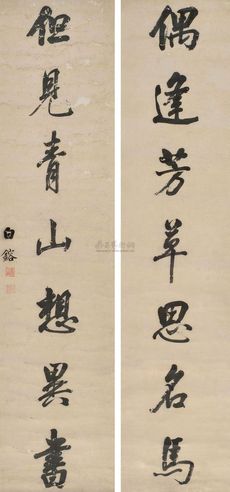 偶逢芳草思名馬
但見青山想異書
白鎔